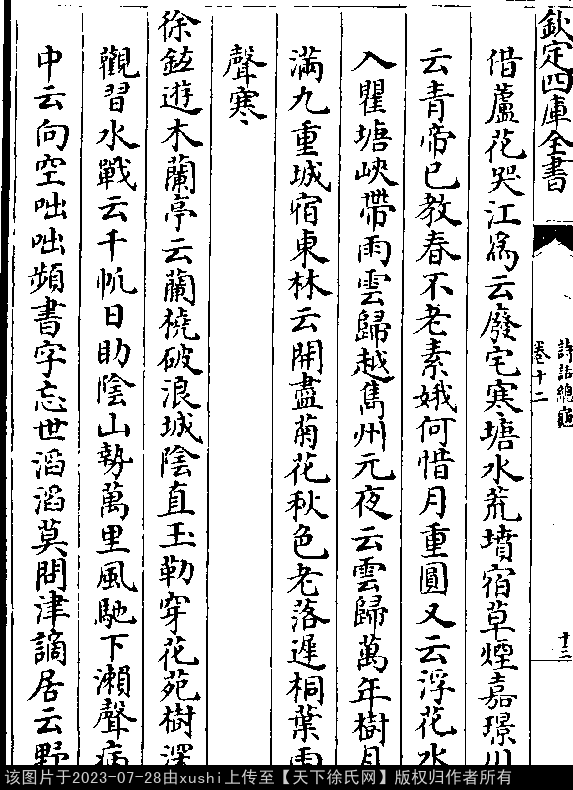 欽定四庫全書
詩話總龜
卷十二
十三
借蘆花哭江為云廢宅寒塘水荒墳宿草煙嘉璟川
云青帝已教春不老素娥何惜月重圓又云浮花水
入瞿塘峽帶雨雲歸越嶲州元夜云雲歸萬年樹月
滿九重城宿東林云開盡菊花秋色老落遲桐葉雨
聲寒
徐鉉遊木蘭亭云蘭橈破浪城陰直玉勒穿花苑樹深
觀習水戰云千帆日助陰山勢萬里風馳下瀨聲病
中云向空咄咄頻書字忘世滔滔莫問津謫居云野
该图片于2023-07-28由xushi上传至【天下徐氏网】版权归作者所有